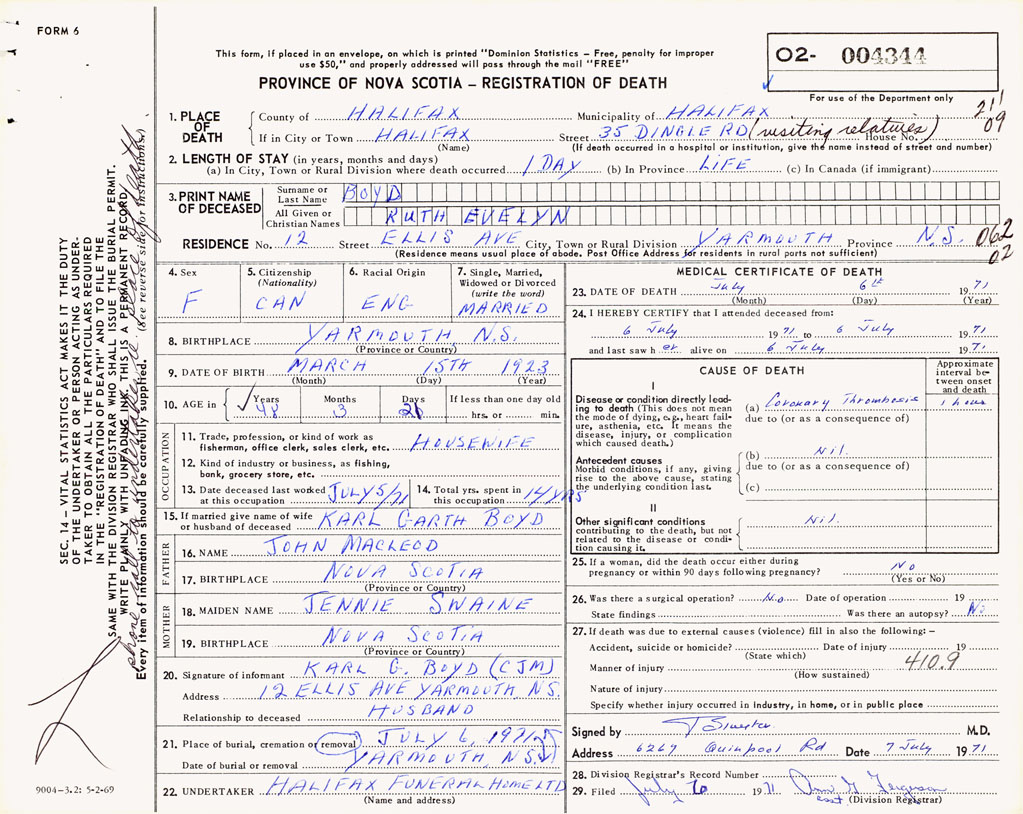 FORM 6
This form, if placed in an envelope, on which is printed "Dominion Statistics – Free, penalty for improper
use $50," and properly addressed will pass through the mail "FREE"
PROVINCE OF NOVA SCOTIA – REGISTRATION OF DEATH
O2- 004344
For use of the Department only
211
09
1. PLACE OF DEATH
County of HALIFAX Municipality of HALIFAX
If in City or Town HALIFAX Street 35 DINGLE RD (visiting relatives) House No.
(Name) (If death occurred in a hospital or institution, give the name instead of street and number)
2. LENGTH OF STAY (in years, months and days)
(a) In City, Town or Rural Division where death occurred 1 DAY (b) In Province LIFE (c) In Canada (if immigrant)
3. PRINT NAME OF DECEASED
Surname or Last Name BOYD
All Given or Christian Names RUTH EVELYN
RESIDENCE No. 12 Street ELLIS AVE City, Town or Rural Division YARMOUTH Province N.S. 062
02
(Residence means usual place of abode. Post Office Address for residents in rural parts not sufficient)
4. Sex F
5. Citizenship (Nationality) CAN
6. Racial Origin ENG
7. Single, Married, Widowed or Divorced (write the word) MARRIED
8. BIRTHPLACE YARMOUTH N.S.
(Province or Country)
9. DATE OF BIRTH MARCH 15TH 1923
(Month) (Day) (Year)
10. AGE in Years 48 Months 3 Days If less than one day old hrs. or min.
OCCUPATION
11. Trade, profession, or kind of work as fisherman, office clerk, sales clerk, etc. HOUSEWIFE
12. Kind of industry or business, as fishing, bank, grocery store, etc.
13. Date deceased last worked at this occupation JULY 5/71
14. Total yrs. spent in this occupation 14 YRS
15. If married give name of wife or husband of deceased KARL GARTH BOYD
FATHER
16. NAME JOHN MACLEOD
17. BIRTHPLACE NOVA SCOTIA
(Province or Country)
MOTHER
18. MAIDEN NAME JENNIE SWAINE
19. BIRTHPLACE NOVA SCOTIA
(Province or Country)
20. Signature of informant KARL G. BOYD (CJM)
Address 12 ELLIS AVE YARMOUTH N.S.
Relationship to deceased HUSBAND
21. Place of burial, cremation or removal JULY 6, 1971
Date of burial or removal YARMOUTH N.S.
22. UNDERTAKER HALIFAX FUNERAL HOME LTD
(Name and address)
MEDICAL CERTIFICATE OF DEATH
23. DATE OF DEATH July 6th 1971
(Month) (Day) (Year)
24. I HEREBY CERTIFY that I attended deceased from:
6 July 1971 to 6 July 1971
and last saw her alive on 6 July 1971
CAUSE OF DEATH
Approximate interval between onset and death
I
Disease or condition directly leading to death (This does not mean the mode of dying, e.g., heart failure, asthenia, etc. It means the disease, injury, or complication which caused death.)
(a) Coronary Thrombosis 1 hour
due to (or as a consequence of)
Antecedent causes
Morbid conditions, if any, giving rise to the above cause, stating the underlying condition last.
(b) Nil.
due to (or as a consequence of)
(c)
II
Other significant conditions contributing to the death, but not related to the disease or condition causing it.
Nil.
25. If a woman, did the death occur either during pregnancy or within 90 days following pregnancy? NO
(Yes or No)
26. Was there a surgical operation? No Date of operation 19
State findings Was there an autopsy? No
27. If death was due to external causes (violence) fill in also the following: –
Accident, suicide or homicide? Date of injury 19
(State which) 410.9
Manner of injury
(How sustained)
Nature of injury
Specify whether injury occurred in industry, in home, or in public place
Signed by M.D.
Address 6267 Quinpool Rd Date 7 July 1971
28. Division Registrar's Record Number
29. Filed July 1971 Ann G Ferguson
(Division Registrar)
SEC. 14 – VITAL STATISTICS ACT MAKES IT THE DUTY
OF THE UNDERTAKER OR PERSON ACTING AS UNDER-
TAKER TO OBTAIN ALL THE PARTICULARS REQUIRED
IN THE "REGISTRATION OF DEATH" AND TO FILE THE
SAME WITH THE DIVISION REGISTRAR WHO SHALL ISSUE THE BURIAL PERMIT.
WRITE PLAINLY WITH UNFADING INK. THIS IS A PERMANENT RECORD
Every item of information should be carefully supplied. (See reverse side for instructions).
9004-3.2: 5-2-69